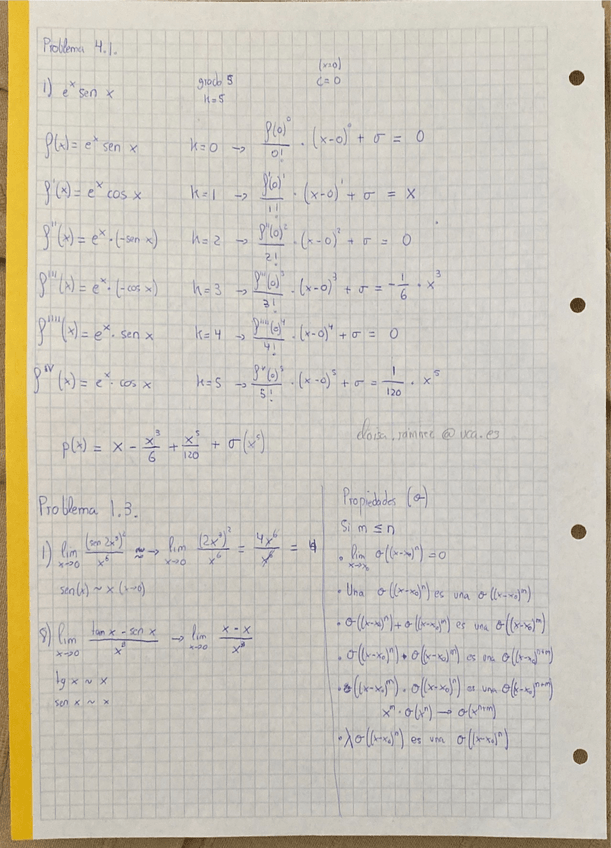 Problema 4.1.
1) e^x sen x grado 5 (x=0)
k=5 c=0
f(x) = e^x sen x k=0 → f(0)^0/0! · (x-0)^0 + σ = 0
f'(x) = e^x cos x k=1 → f'(0)^1/1! · (x-0)^1 + σ = x
f''(x) = e^x · (-sen x) k=2 → f''(0)^2/2! · (x-0)^2 + σ = 0
f'''(x) = e^x · (-cos x) k=3 → f'''(0)^3/3! · (x-0)^3 + σ = -1/6 · x^3
f''''(x) = e^x · sen x k=4 → f''''(0)^4/4! · (x-0)^4 + σ = 0
(x) = e^x · cos x k=5 → f^v(0)^5/5! · (x-0)^5 + σ = 1/120 · x^5
@uca.es
p(x) = x - x^3/6 + x^5/120 + σ(x^5)
Problema 1.3.
1) lim x→0 (sen 2x^3)^2/x^6 ≈→ lim x→0 (2x^3)^2/x^6 = 4x^6/x^6 = 4
sen(x) ~ x (x→0)
8) lim x→0 tan x - sen x/x^3 → lim x→0 x - x/x^3
tg x ~ x
sen x ~ x
Propiedades (σ)
Si m ≤ n
• lim x→x₀ σ((x-x₀)^n) = 0
• Una σ((x-x₀)^n) es una σ((x-x₀)^m)
• σ((x-x₀)^n) + σ((x-x₀)^m) es una σ((x-x₀)^m)
• σ((x-x₀)^n) · σ((x-x₀)^m) es una σ((x-x₀)^n+m)
• ((x-x₀)^m) · σ((x-x₀)^n) es una σ((x-x₀)^n+m)
x^m · σ(x^n) → σ(x^n+m)
• λσ((x-x₀)^n) es una σ((x-x₀)^n)